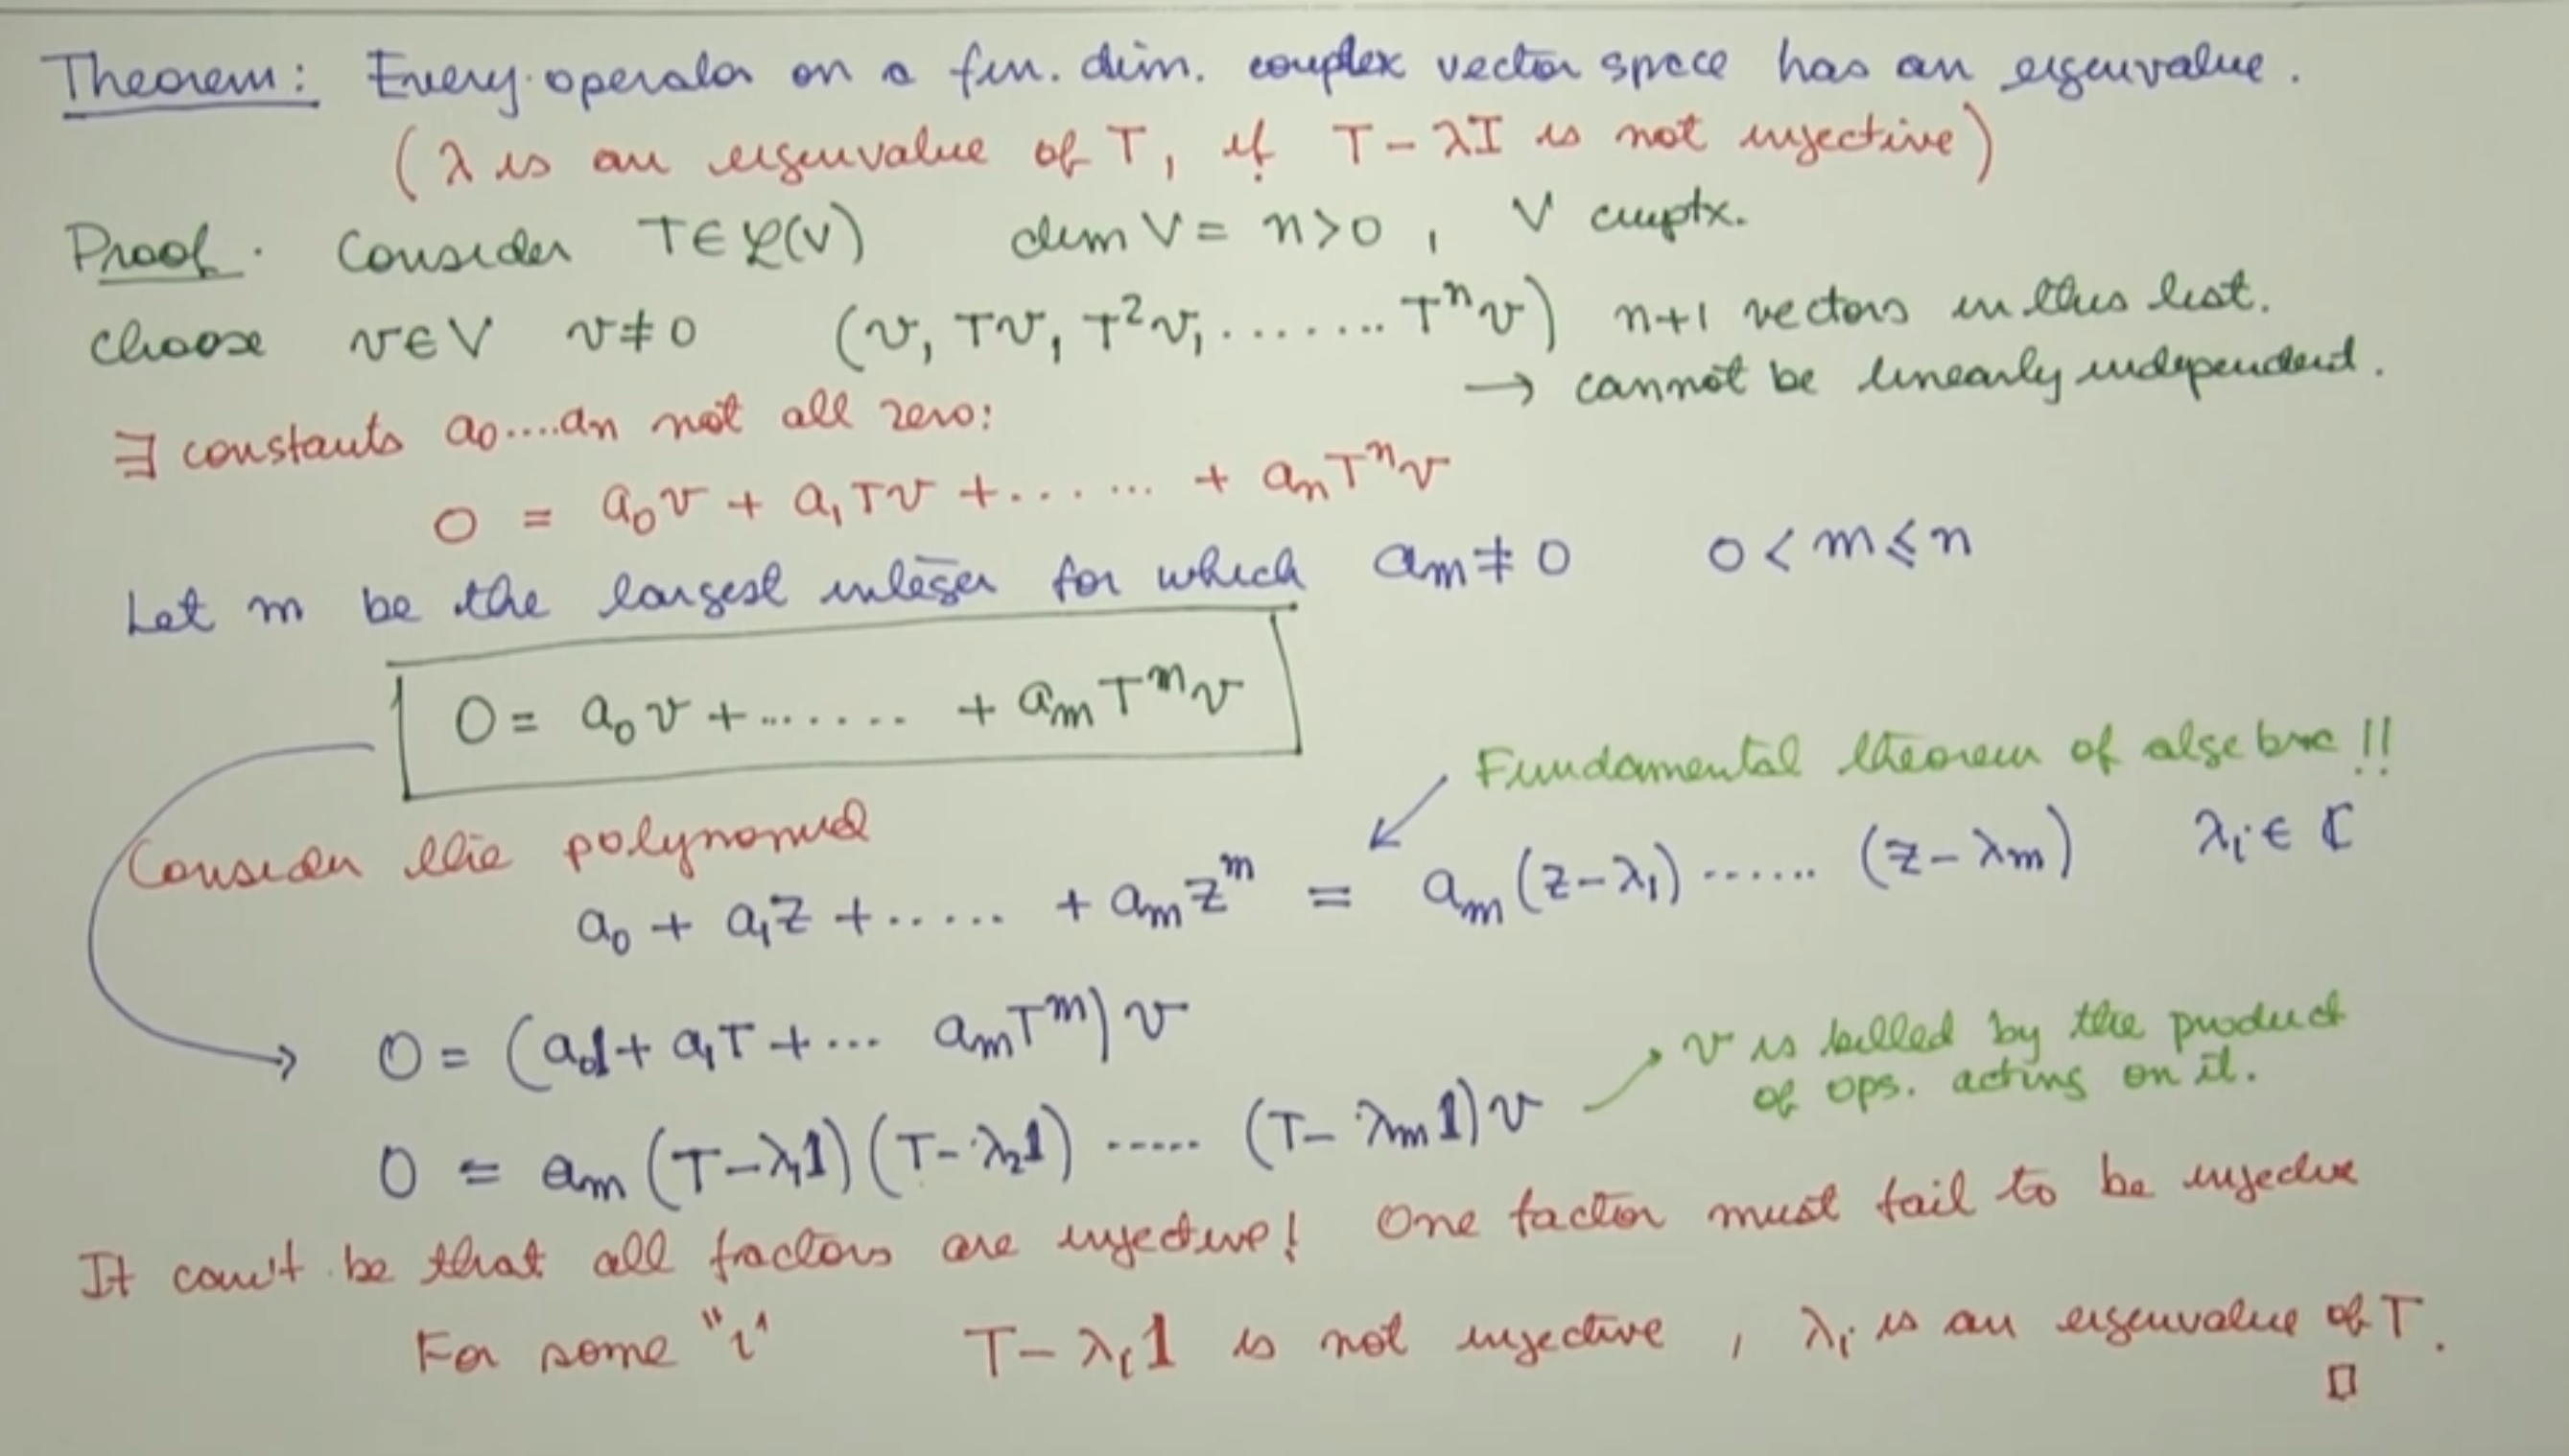 Theorem: Every operator on a fin. dim. complex vector space has an eigenvalue.
(λ is an eigenvalue of T, if T - λI is not injective)
Proof. Consider T∈ℒ(V) dim V = n>0, V cmptx.
choose v∈V v≠0 (v, Tv, T²v, ........ Tⁿv) n+1 vectors in this list.
→ cannot be linearly independent.
∃ constants a₀....aₙ not all zero:
0 = a₀v + a₁Tv + ...... + aₙTⁿv
Let m be the largest integer for which aₘ ≠ 0 0 < m ≤ n
0 = a₀v + ....... + aₘTᵐv
Fundamental theorem of algebra!!
Consider the polynomial
a₀ + a₁z + ..... + aₘzᵐ = aₘ(z-λ₁) ...... (z-λₘ) λᵢ ∈ ℂ
0 = (a₀1 + a₁T + ... aₘTᵐ)v
v is killed by the product
of ops. acting on it.
0 = aₘ(T-λ₁1)(T-λ₂1) ..... (T-λₘ1)v
It can't be that all factors are injective! One factor must fail to be injective
For some "i" T-λᵢ1 is not injective, λᵢ is an eigenvalue of T.
□